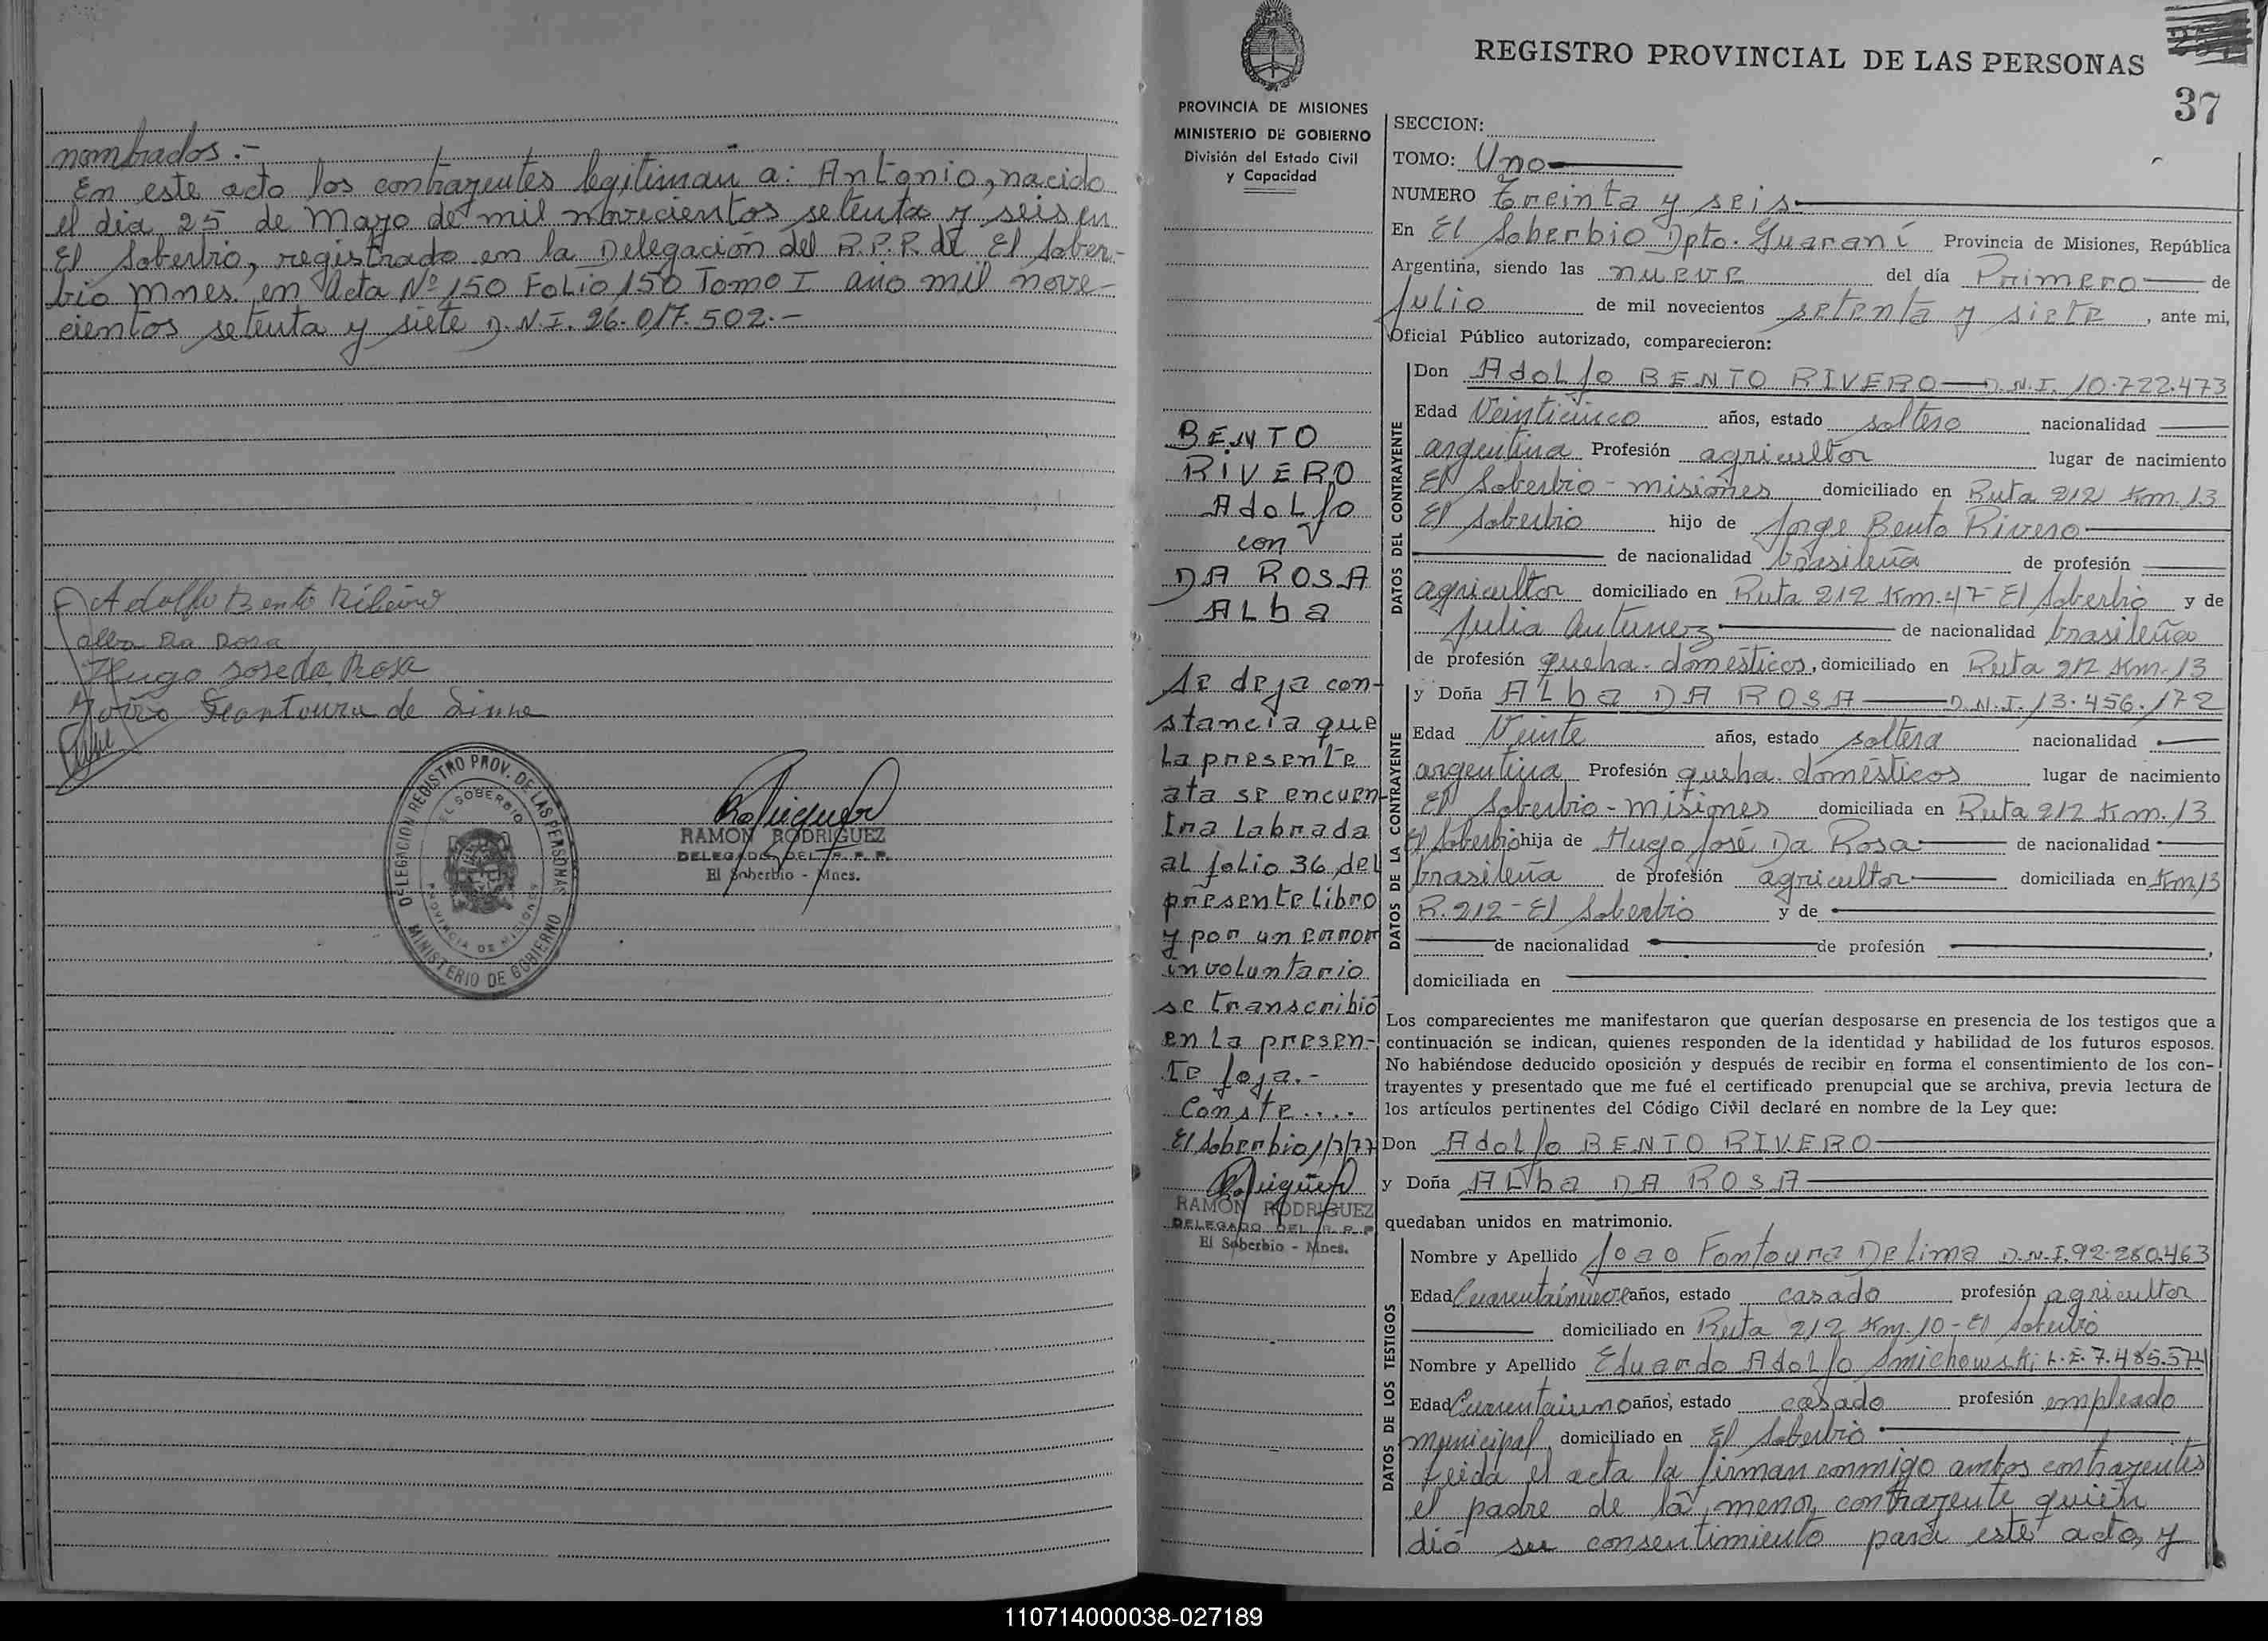 nombrados.-
En este acto los contrayentes legitiman a: Antonio, nacido
el dia 25 de Mayo de mil novecientos setenta y seis en
El Soberbio, registrado en la Delegación del R.P.P. de El Sober-
bio Mnes. en Acta Nº 150 Folio 150 Tomo I año mil nove-
cientos setenta y siete D.N.I. 26.017.502.-
Adolfo Bento Ribeiro
alba Da Rosa
Hugo Jose da Rosa
Fontoura de
DELEGACION REGISTRO PROV. DE LAS PERSONAS
EL SOBERBIO
PROVINCIA DE MISIONES
MINISTERIO DE GOBIERNO
RAMON RODRIGUEZ
DELEGADO DEL R. P. P.
El Soberbio - Mnes.
REGISTRO PROVINCIAL DE LAS PERSONAS
37
PROVINCIA DE MISIONES
MINISTERIO DE GOBIERNO
División del Estado Civil
y Capacidad
BENTO
RIVERO
Adolfo
con
DA ROSA
ALba
Se deja con-
stancia que
la presente
ata se encuen-
tra labrada
al folio 36 del
presente libro
y por un error
involuntario
se transcribió
en la presen-
te foja.-
Conste....
El Soberbio 1/7/77
RAMON RODRIGUEZ
DELEGADO DEL R. P. P
El Soberbio - Mnes.
SECCION:
TOMO: Uno
NUMERO Treinta y seis
En El Soberbio Dpto. Guaraní Provincia de Misiones, República
Argentina, siendo las nueve del día Primero de
Julio de mil novecientos setenta y siete, ante mi,
Oficial Público autorizado, comparecieron:
DATOS DEL CONTRAYENTE
Don Adolfo BENTO RIVERO D.N.I. 10.722.473
Edad Veinticinco años, estado soltero nacionalidad
argentina Profesión agricultor lugar de nacimiento
El Soberbio - misiones domiciliado en Ruta 212 Km. 13
El Soberbio hijo de Jorge Bento Rivero
de nacionalidad brasileña de profesión
agricultor domiciliado en Ruta 212 Km. 47 El Soberbio y de
Julia Antunez de nacionalidad brasileña
de profesión queha. domésticos, domiciliado en Ruta 212 Km. 13
DATOS DE LA CONTRAYENTE
y Doña ALba DA ROSA D.N.I. 13.456.172
Edad Veinte años, estado soltera nacionalidad
argentina Profesión queha. domésticos lugar de nacimiento
El Soberbio - misiones domiciliada en Ruta 212 Km. 13
El Soberbio hija de Hugo José Da Rosa de nacionalidad
brasileña de profesión agricultor domiciliada en Km 13
R. 212 - El Soberbio y de
de nacionalidad de profesión ,
domiciliada en
Los comparecientes me manifestaron que querían desposarse en presencia de los testigos que a
continuación se indican, quienes responden de la identidad y habilidad de los futuros esposos.
No habiéndose deducido oposición y después de recibir en forma el consentimiento de los con-
trayentes y presentado que me fué el certificado prenupcial que se archiva, previa lectura de
los artículos pertinentes del Código Civil declaré en nombre de la Ley que:
Don Adolfo BENTO RIVERO
y Doña ALba DA ROSA
quedaban unidos en matrimonio.
DATOS DE LOS TESTIGOS
Nombre y Apellido Joao Fontoura De Lima D.N.I. 92.280.463
Edad Cuarentainueve años, estado casado profesión agricultor
domiciliado en Ruta 212 Km. 10 - El Soberbio
Nombre y Apellido Eduardo Adolfo Smichowski L.E. 7.485.574
Edad Cuarentaiuno años, estado casado profesión empleado
municipal, domiciliado en El Soberbio
Leida el acta la firman conmigo ambos contrayentes
el padre de la menor contrayente quien
dió su consentimiento para este acto, y
110714000038-027189